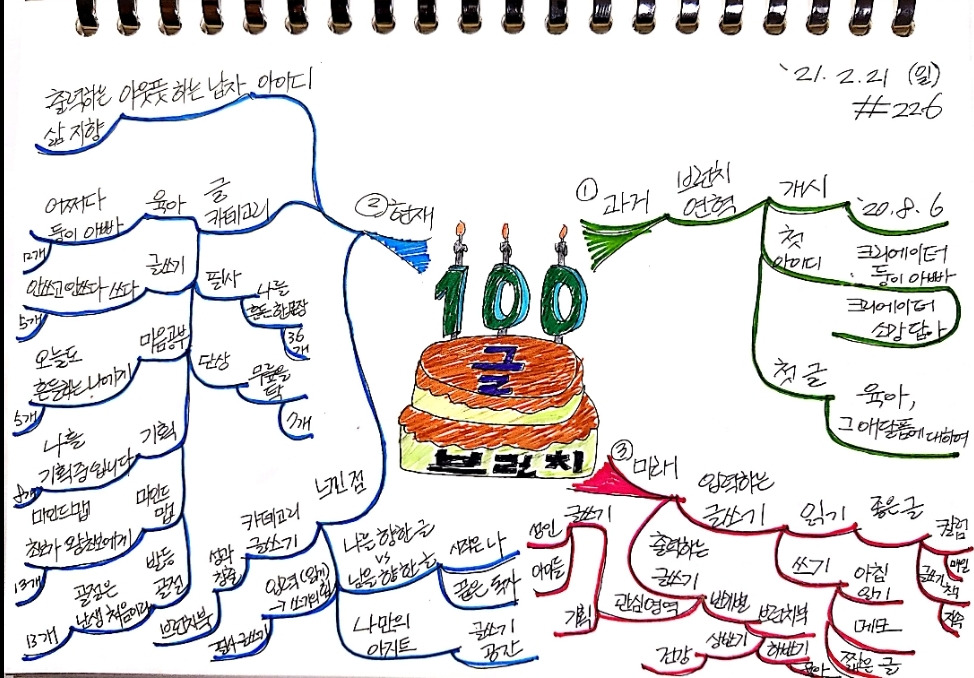 '21. 2. 21 (일)
#226
100
글
브런치
① 과거
브런치
연혁
개시
'20. 8. 6
첫
아이디
크리에이터
둥이 아빠
크리에이터
소망 담아
첫 글
육아,
그 애달픔에 대하여
② 현재
아이디
출력하는 아웃풋 하는 남자
삶 지향
글
카테고리
육아
어쩌다
둥이 아빠
12개
글쓰기
안쓰고 안쓰다 쓰다
5개
마음공부
오늘도
흔들리는 나에게
5개
기획
나를
기획중입니다
8개
마인드
맵
마인드맵
초보가 왕초보에게
13개
반등
골절
골절은
난생 처음이라
13개
필사
나를
흔든 한문장
36
개
단상
무릎을
탁
7개
느낀 점
카테고리
글쓰기
성과
창출
브런치북
입력(읽기)
필사 글쓰기
나를 향한 글
vs
남을 향한 글
시작은 나
끝은 독자
나만의
아지트
글쓰기
공간
③ 미래
입력하는
글쓰기
읽기
좋은 글
칼럼
매일
글쓰기
책
쓰기
아침
일기
메모
짧은 글
출력하는
글쓰기
관심영역
글쓰기
성인
아이들
기획
번개별
브런치북
상반기
건강
하반기
육아